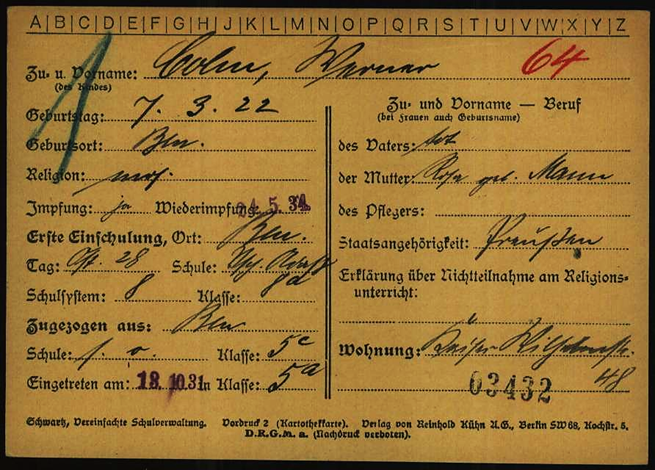 A|B|C|D|E|F|G|H|I|J|K|L|M|N|O|P|Q|R|S|T|U|V|W|X|Y|Z
1
64
Zu- u. Vorname: Werner
(des Kindes)
Geburtstag: 7. 3. 22
Geburtsort: Bln.
Religion: mos.
Impfung: ja Wiederimpfung: 24.5.34
Erste Einschulung, Ort: Bln.
Tag: 28 Schule:
Schulsystem: 8 Klasse: 8a
Zugezogen aus: Bln
Schule: s. o. Klasse: 5c
Eingetreten am: 13.10.31 in Klasse: 5a
Zu- und Vorname — Beruf
(bei Frauen auch Geburtsname)
des Vaters: tot
der Mutter: Rosa geb. Mann
des Pflegers:
Staatsangehörigkeit: Preußen
Erklärung über Nichtteilnahme am Religions-
unterricht:
Wohnung: Kaiser Wilhelmstr.
48
03432
Schwartz, Vereinfachte Schulverwaltung. Vordruck 2 (Kartothekkarte). Verlag von Reinhold Kühn A.G., Berlin SW 68, Kochstr. 5.
D.R.G.M. a. (Nachdruck verboten).